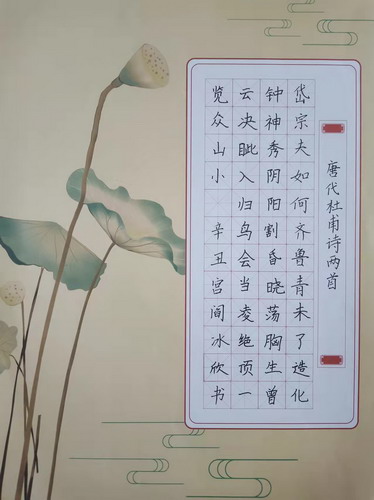 唐代杜甫诗两首
岱宗夫如何齐鲁青未了造化
钟神秀阴阳割昏晓荡胸生曾
云决眦入归鸟会当凌绝顶一
览众山小 辛丑宫阎冰欣书